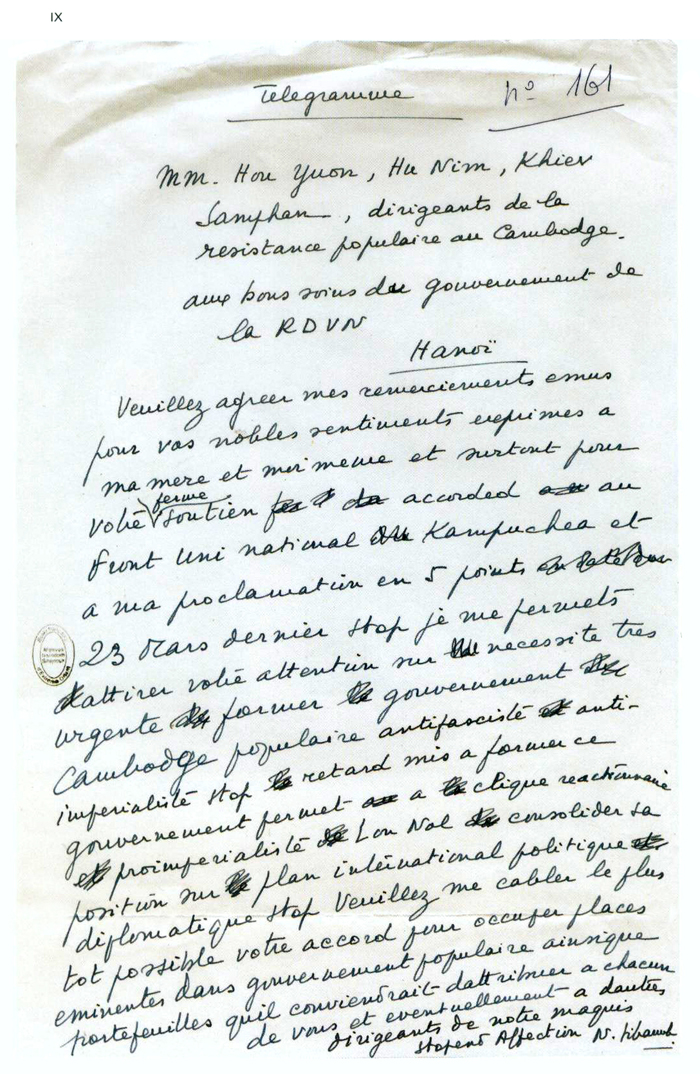 IX
Telegramme
no 161
MM. Hou Yuon, Hu Nim, Khieu
Samphan, dirigeants de la
resistance populaire au Cambodge.
aux bons soins du gouvernement de
la RDVN
Hanoï
Veuillez agreer mes remerciements emus
pour vos nobles sentiments exprimes a
ma mere et moi meme et surtout pour
ferme
votre soutien accorded au
Front Uni national Kampuchea et
a ma proclamation en 5 points
23 Mars dernier stop je me permets
dattirer votre attention sur necessite tres
urgente former gouvernement
Cambodge populaire antifasciste anti-
imperialiste stop retard mis a former ce
gouvernement permet a clique reactionnaire
proimperialiste Lon Nol consolider sa
position sur plan international politique
diplomatique stop Veuillez me cabler le plus
tot possible votre accord pour occuper places
eminentes dans gouvernement populaire ainsique
portefeuilles quil conviendrait dattribuer a chacun
de vous et eventuellement a dautres
dirigeants de notre maquis
stopend Affection N. Sihanouk